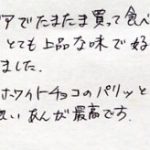 アでたまたま買って食べ
とても上品な味で好
ました.
ホワイトチョコのパリッと
あんが最高です.